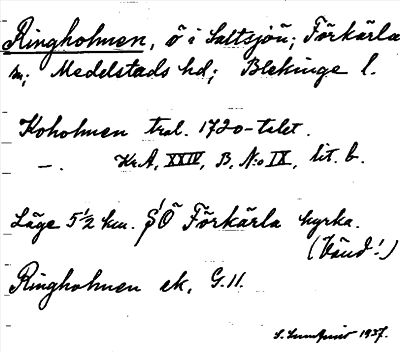 Ringholmen, ö i Saltsjön; Förkärla
sn; Medelstads hd; Blekinge l.
Koholmen trol. 1720-talet.
—. KrA, XXIV, B. N:o IX, lit. b.
Läge 5 1/2 km. SÖ Förkärla kyrka.
(Vänd!)
Ringholmen ek. G.11.
1937.